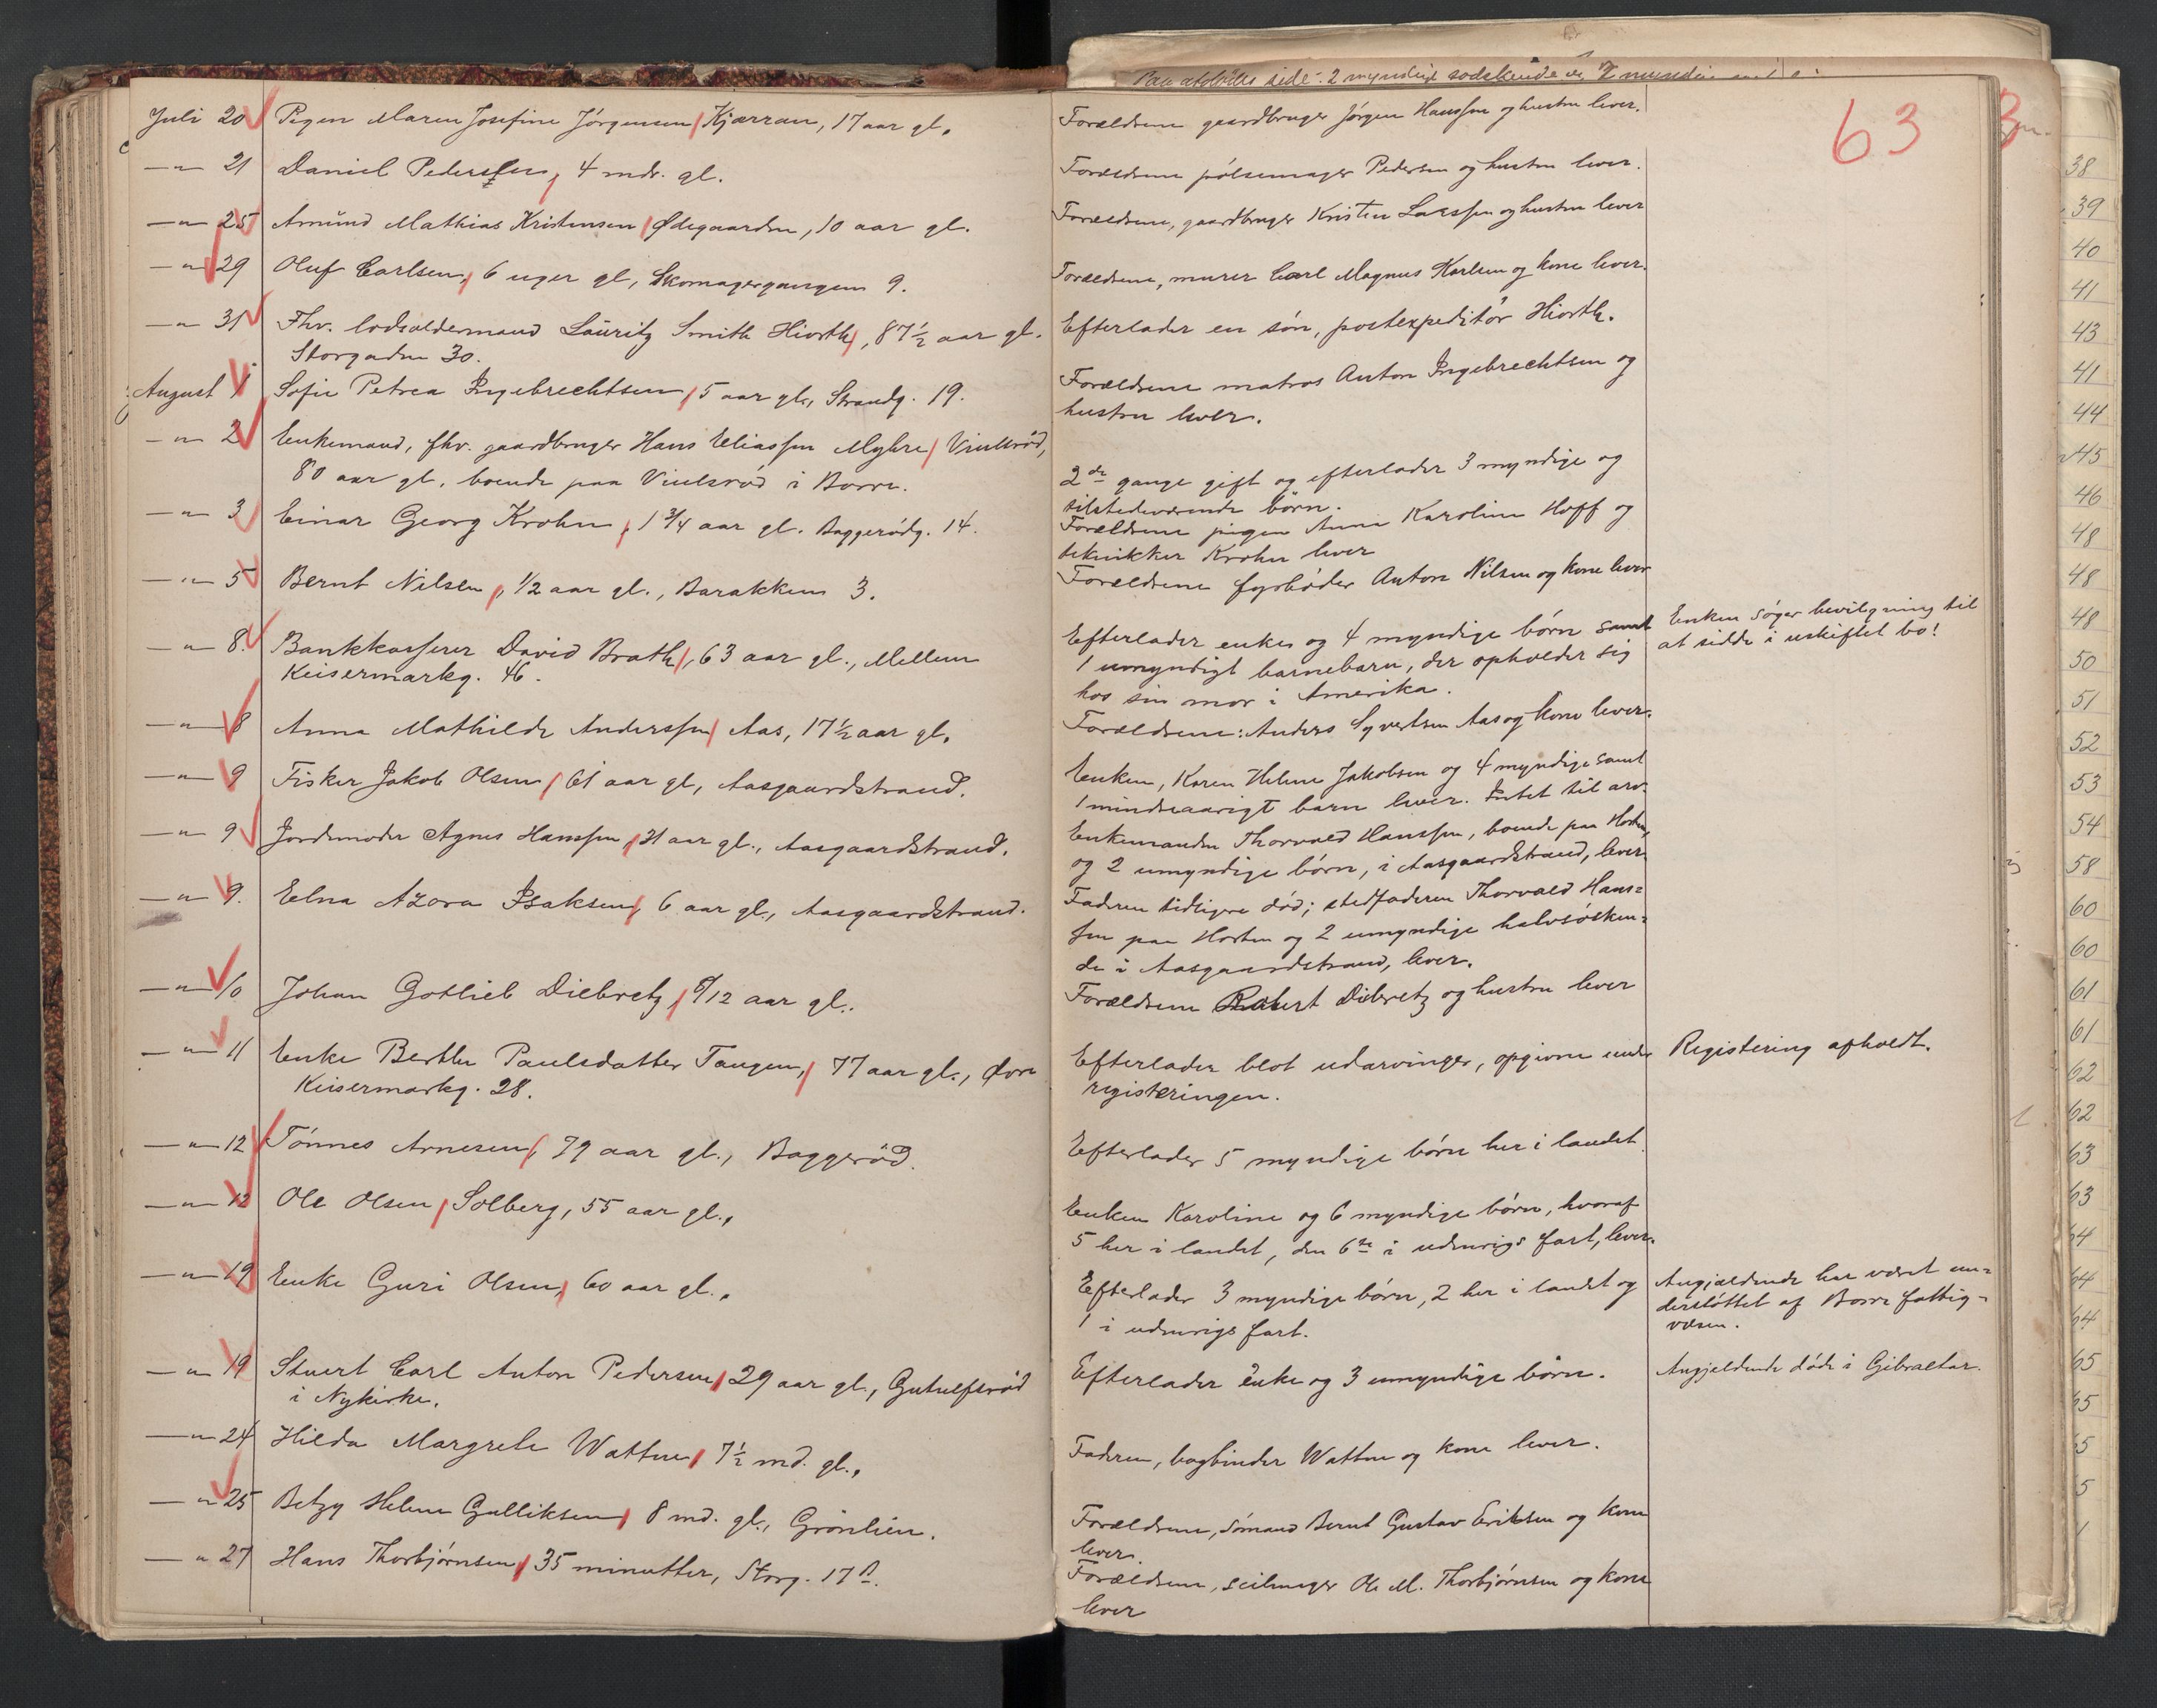 Paa afdödes side: 2 myndige sødskende og
63
Juli 20 Pigen Maren Josefine Jörgensen Kjærran, 17 aar gl. Forældrene gaardbruger Jörgen Hanssen og hustru lever.
— " — 21 Daniel Pederssen, 4 mdr. gl. Forældrene pölsemager Pedersen og hustru lever.
— " — 25 Amund Mathias Kristensen Ødegaarden, 10 aar gl. Forældrene, gaardbruger Kristen Larssen og hustru lever
— " — 29 Oluf Carlsen, 6 uger gl, Skomagergangen 9. Forældrene, murer Carl Magnus Karlsen og kone lever.
— " — 31 Fhv. lodsoldermand Lauritz Smith Hiorth, 87½ aar gl. Efterlader en sön, postexpeditör Hiorth.
Storgaden 30.
August 1 Sofie Petrea Ingebrechtsen, 5 aar gl., Strandg. 19. Forældrene matros Anton Ingebrechtsen og
hustru lever.
— " — 2 Enkemand, fhv. gaardbruger Hans Eliassen Myhre Viulsröd,
80 aar gl. boende paa Viulsröd i Borre. 2de gange gift og efterlader 3 myndige og
tilstedeværende börn.
— " — 3 Einar Georg Krohn, 1 3/4 aar gl. Baggerödg. 14. Forældrene pigen Anna Karoline Hoff og
tekniker Krohn lever
— " — 5 Bernt Nilsen, 1/2 aar gl., Barakken 3. Forældrene fyrböder Anton Nilsen og kone lever
— " — 8. Bankkasserer David Brath, 63 aar gl., Mellem Efterlader enke og 4 myndige börn samt Enken söger bevilgning til
Keisermarkg. 46. 1 umyndigt barnebarn, der opholder sig at sidde i uskiftet bo!
hos sin mor i Amerika.
— " — 8 Anna Mathilde Anderssen Aas, 17½ aar gl. Forældrene: Anders Syvertsen Aas og kone lever.
— " — 9 Fisker Jakob Olsen, 61 aar gl, Aasgaardstrand. Enken, Karen Helene Jakobsen og 4 myndige samt
1 mindreaarigt barn lever. Intet til arv.
— " — 9 Jordemoder Agnes Hanssen, 31 aar gl., Aasgaardstrand. Enkemanden Thorvald Hanssen, boende paa Horten,
og 2 umyndige börn, i Aasgaardstrand, lever.
— " — 9. Elna Azora Isaksen, 6 aar gl., Aasgaardstrand. Faderen tidligere död; stedfaderen Thorvald Hans=
sen paa Horten og 2 umyndige halvsösken=
de i Aasgaardstrand, lever.
— " — 10 Johan Gotlieb Diebretz, /12 aar gl.. Forældrene Robert Diebretz og hustru lever
— " — 11 Enke Berthe Paulsdatter Tangen, 77 aar gl., Øvre Efterlader blot udarvinger, opgivne under Registering afholdt.
Keisermarkg. 28. registeringen.
— " — 12 Tönnes Arnesen, 79 aar gl., Baggeröd. Efterlader 5 myndige börn her i landet
— " — 12 Ole Olsen, Solberg, 55 aar gl., Enken Karoline og 6 myndige börn, hvoraf
5 her i landet, den 6te i udenrigs fart, lever.
— " — 19 Enke Guri Olsen, 60 aar gl., Efterlader 3 myndige börn, 2 her i landet og Angjældende har været un=
1 i udenrigs fart. derstöttet af Borre fattig=
væsen.
— " — 19 Stuert Carl Anton Pedersen, 29 aar gl., Gutulfsröd Efterlader enke og 3 umyndige börn. Angjeldende döde i Gibraltar.
i Nykirke.
— " — 24 Hilda Margrete Wattne, 7½ md. gl., Faderen, bogbinder Wattne og kone lever.
— " — 25 Betzy Helene Gulliksen, 8 md. gl., Grönlien. Forældrene, sömand Bernt Gustav Eriksen og kone
lever.
— " — 27 Hans Thorbjörnsen, 35 minutter, Storg. 17 Forældrene, seilmager Ole M. Thorbjörnsen og kone
lever
38
39
40
41
43
41
44
45
46
48
48
48
50
51
52
53
54
58
60
60
61
61
62
62
63
63
64
64
64
65
65